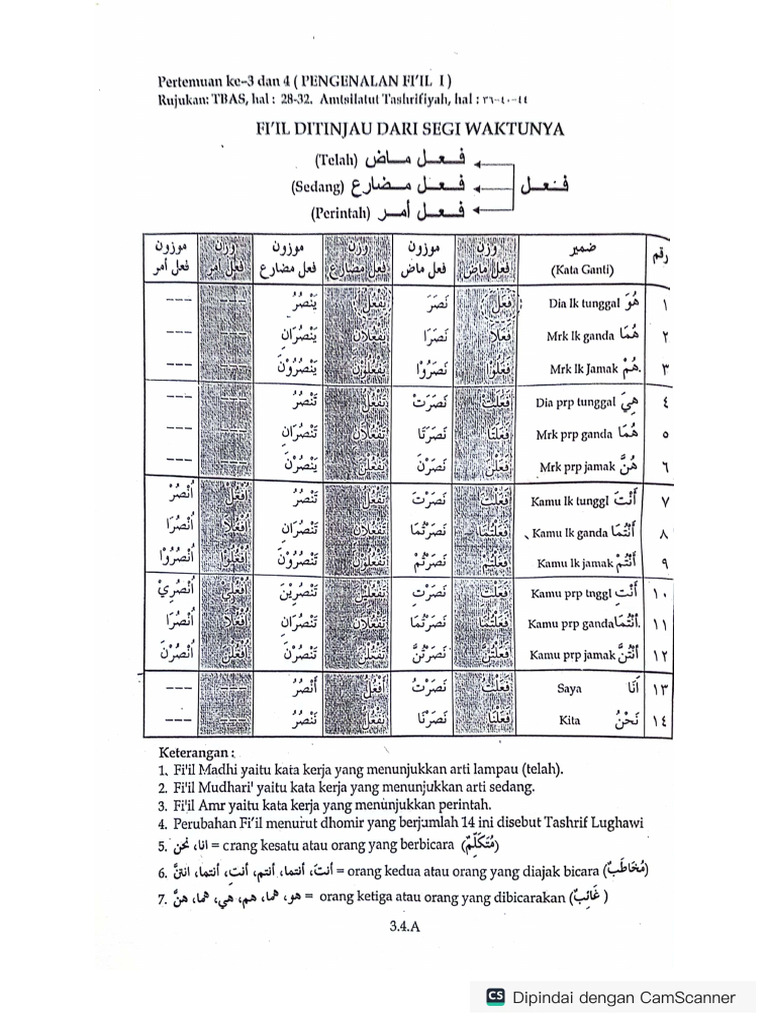 Pertemuan ke-3 dan 4 ( PENGENALAN FI'IL I )
Rujukan: TBAS, hal : 28-32. Amtsilatut Tashrifiyah, hal : ٣٦-٤٠-٤٤
FI'IL DITINJAU DARI SEGI WAKTUNYA
فعل ماض (Telah)
فعل فعل مضارع (Sedang)
فعل أمر (Perintah)
رقم ضمير (Kata Ganti) وزن فعل ماض موزون فعل ماض وزن فعل مضارع موزون فعل مضارع وزن فعل أمر موزون فعل أمر
١ هُوَ Dia lk tunggal فَعَلَ نَصَرَ يَفْعُلُ يَنْصُرُ --- ---
٢ هُمَا Mrk lk ganda فَعَلَا نَصَرَا يَفْعُلَانِ يَنْصُرَانِ --- ---
٣ هُمْ. Mrk lk Jamak فَعَلُوْا نَصَرُوْا يَفْعُلُوْنَ يَنْصُرُوْنَ --- ---
٤ هِيَ Dia prp tunggal فَعَلَتْ نَصَرَتْ تَفْعُلُ تَنْصُرُ --- ---
٥ هُمَا Mrk prp ganda فَعَلَتَا نَصَرَتَا تَفْعُلَانِ تَنْصُرَانِ --- ---
٦ هُنَّ Mrk prp jamak فَعَلْنَ نَصَرْنَ يَفْعُلْنَ يَنْصُرْنَ --- ---
٧ أَنْتَ Kamu lk tunggl فَعَلْتَ نَصَرْتَ تَفْعُلُ تَنْصُرُ اُفْعُلْ اُنْصُرْ
٨ أَنْتُمَا Kamu lk ganda فَعَلْتُمَا نَصَرْتُمَا تَفْعُلَانِ تَنْصُرَانِ اُفْعُلَا اُنْصُرَا
٩ أَنْتُمْ Kamu lk jamak فَعَلْتُمْ نَصَرْتُمْ تَفْعُلُوْنَ تَنْصُرُوْنَ اُفْعُلُوْا اُنْصُرُوْا
١٠ أَنْتِ Kamu prp tnggl فَعَلْتِ نَصَرْتِ تَفْعُلِيْنَ تَنْصُرِيْنَ اُفْعُلِيْ اُنْصُرِيْ
١١ أَنْتُمَا. Kamu prp ganda فَعَلْتُمَا نَصَرْتُمَا تَفْعُلَانِ تَنْصُرَانِ اُفْعُلَا اُنْصُرَا
١٢ أَنْتُنَّ Kamu prp jamak فَعَلْتُنَّ نَصَرْتُنَّ تَفْعُلْنَ تَنْصُرْنَ اُفْعُلْنَ اُنْصُرْنَ
١٣ أَنَا Saya فَعَلْتُ نَصَرْتُ أَفْعُلُ أَنْصُرُ --- ---
١٤ نَحْنُ Kita فَعَلْنَا نَصَرْنَا نَفْعُلُ نَنْصُرُ --- ---
Keterangan :
1. Fi'il Madhi yaitu kata kerja yang menunjukkan arti lampau (telah).
2. Fi'il Mudhari' yaitu kata kerja yang menunjukkan arti sedang.
3. Fi'il Amr yaitu kata kerja yang menunjukkan perintah.
4. Perubahan Fi'il menurut dhomir yang berjumlah 14 ini disebut Tashrif Lughawi
5. انا، نحن = orang kesatu atau orang yang berbicara (مُتَكَلِّمٌ)
6. أنتَ، أنتما، أنتم، أنتِ، أنتما، انتنَّ = orang kedua atau orang yang diajak bicara (مُخَاطَبٌ)
7. هو، هما، هم، هي، هما، هنَّ = orang ketiga atau orang yang dibicarakan (غَائِبٌ )
3.4.A
CS Dipindai dengan CamScanner